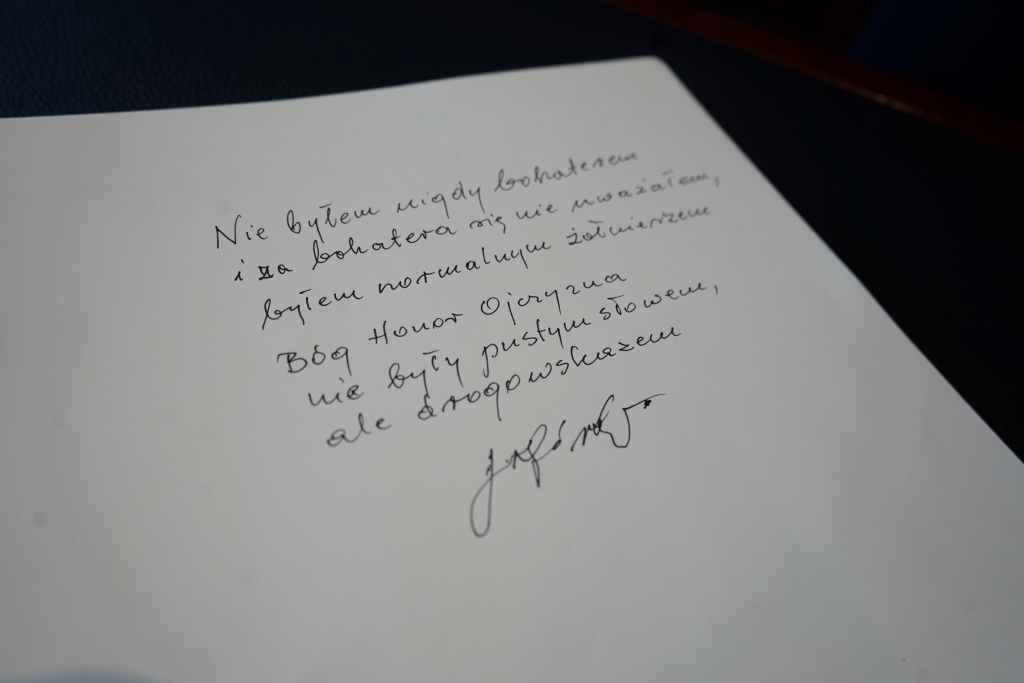 Nie byłem nigdy bohaterem
i za bohatera się nie uważałem,
byłem normalnym żołnierzem
Bóg Honor Ojczyzna
nie były pustym słowem,
ale drogowskazem